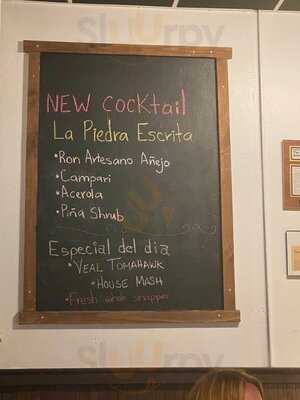 Slurrpy
NEW Cocktail
La Piedra Escrita
• Ron Artesano Añejo
• Campari
• Acerola
• Piña Shrub
Especial del dia
• VEAL TOMAHAWK
• HOUSE MASH
• Fresh whole snapper